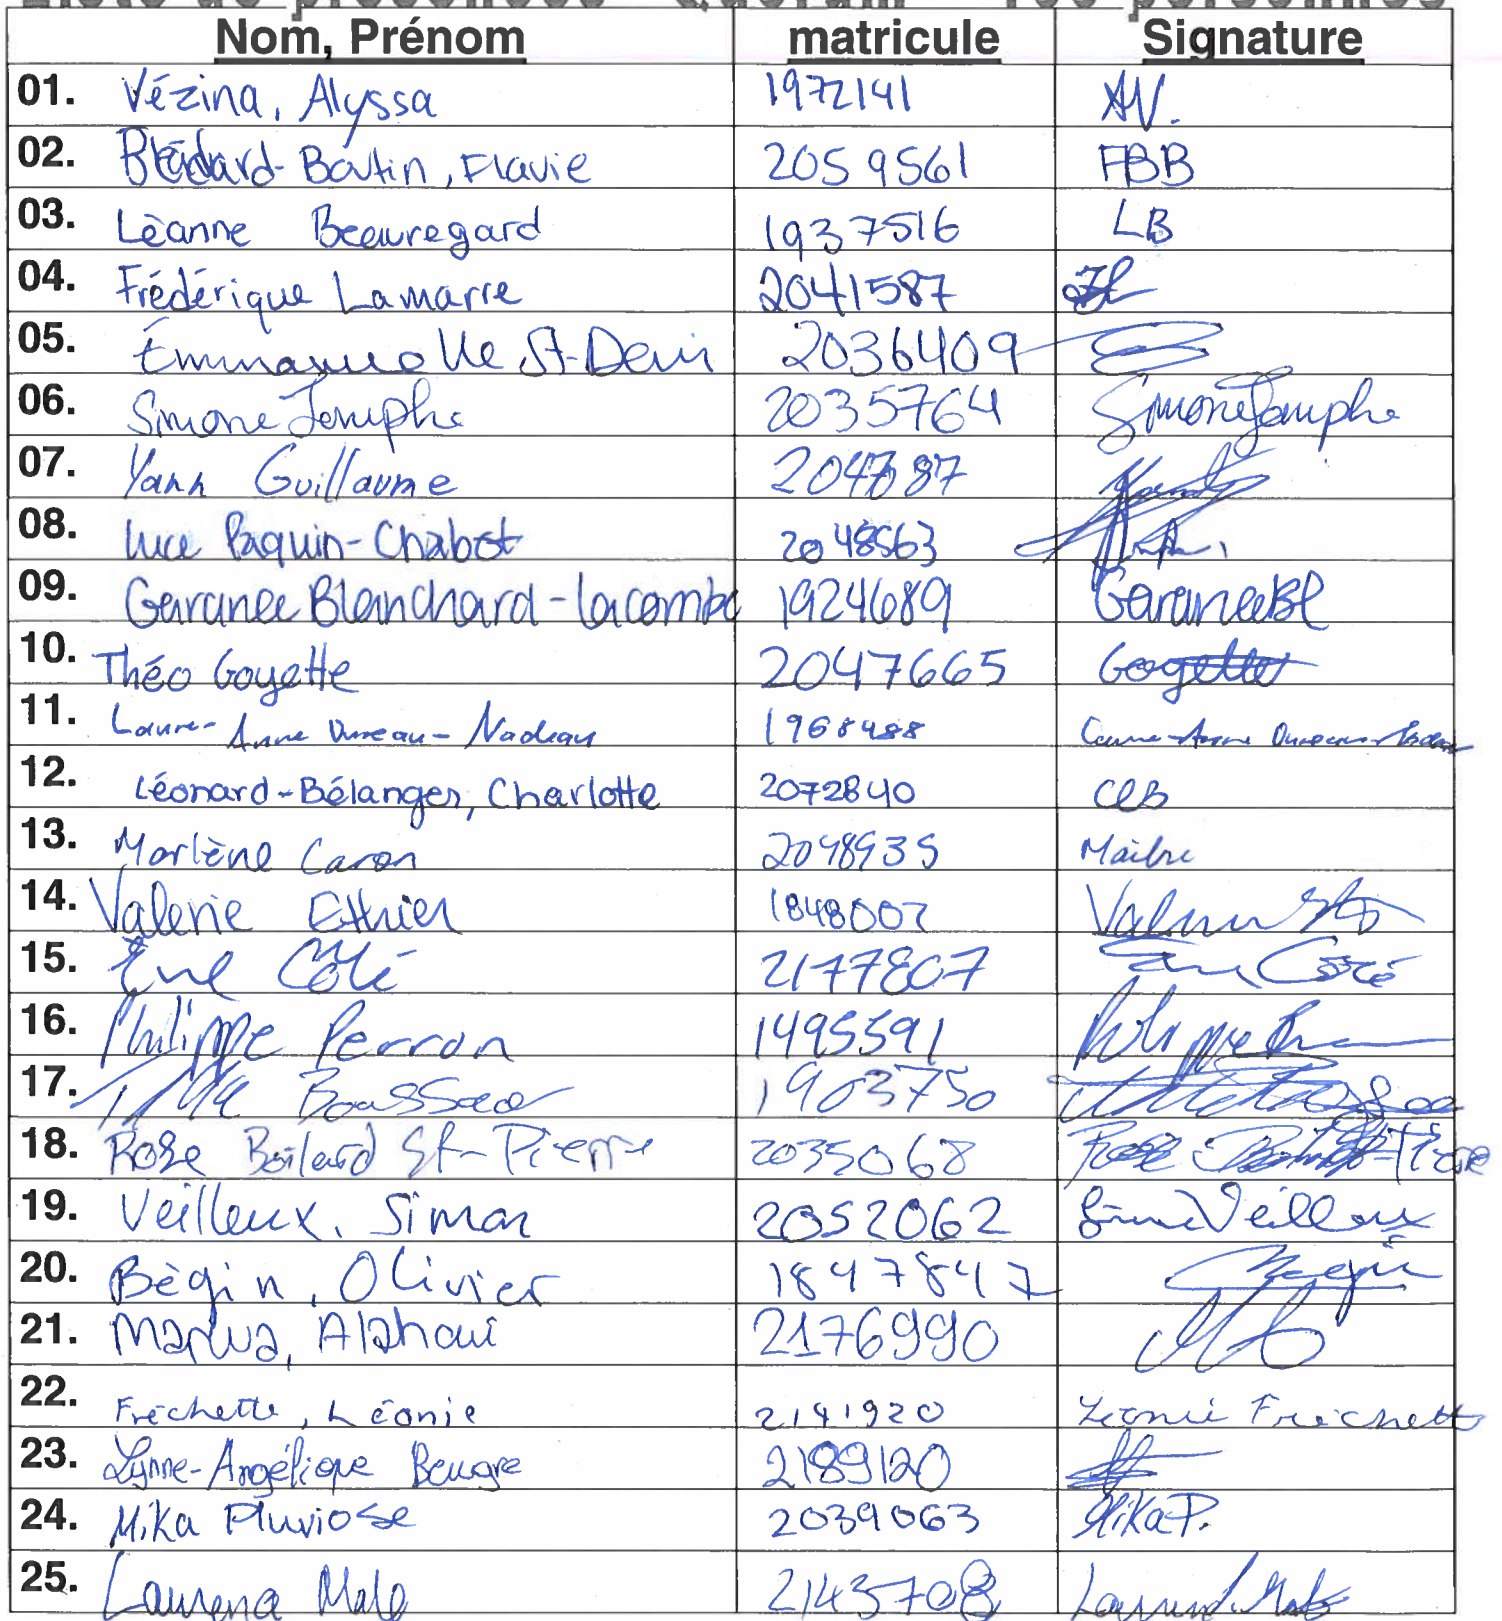 Liste de présences Quorum 100 personnes
Nom, Prénom matricule Signature
01. Vézina, Alyssa 1972141 AV.
02. Bédard-Boutin, Flavie 2059561 FBB
03. Lèanne Beauregard 1937516 LB
04. Frédérique Lamarre 2041587
05. Emmanuelle St-Denis 2036409
06. Simone 2035764 Simone
07. Yann Guillaume
08. Luce Paquin-Chabot 2048563
09. Garance Blanchard-Lacombe 1924689 GaranceBl
10. Théo Goyette 2047665 Goyette
11. Laure-Anne Nadeau 1968488 Laure-Anne
12. Léonard-Bélanger, Charlotte 2072840 CLB
13. Marlène Caron 2048935
14. Valerie Ethier 1848007
15. Ève Côté 2177807 Côté
16. Philippe Perron 1495591
17. 1903750
18. Rose Boilard St-Pierre 2035068 Rose
19. Veilleux, Simon 2052062 Simon Veilleux
20. Bègin, Olivier 1847847 Begin
21. Marwa, Alahoui 2176990
22. Fréchette, Léonie 2141920 Léonie Frechette
23. Lynne-Angélique Beugre 2189120
24. Mika Pluviose 2039063 Mika P.
25. Laurena Malo 2143708